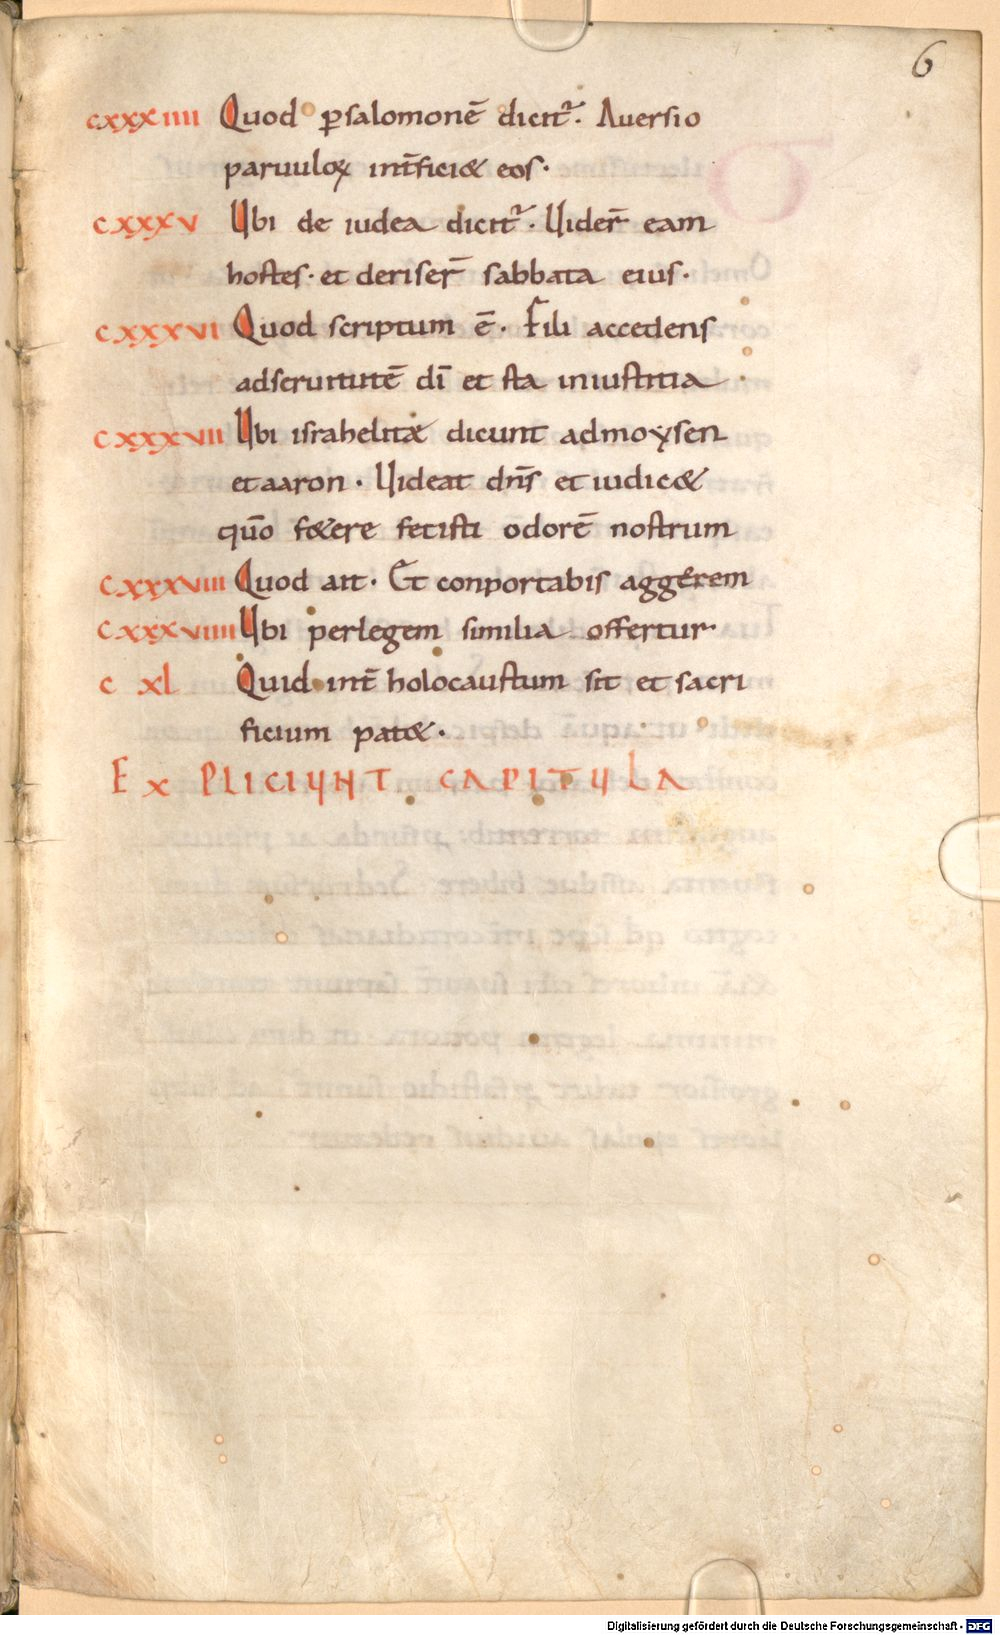 6
cxxxiiii Quod ꝑsalomonē dicit᷑. Auersio
paruuloꝝ int̄fici& eos·
cxxxv Ubi de iudea dicit᷑. Uider̄ eam
hostes· et deriser̄ sabbata eius·
cxxxvi Quod scriptum ē· Fili accedens
adseruitutē dī et sta iniustitia
cxxxvii Ubi israhelitæ dicunt admoysen
etaaron· Uideat dn̄s et iudic&
quō f&ere fecisti odorē nostrum
cxxxviii Quod ait· Et conportabis aggerem
cxxxviiii Ubi perlegem similia offertur·
c xl Quid int̄ holocaustum sit et sacri
ficium pat&·
EXPLICIUNT CAPITULA
Digitalisierung gefördert durch die Deutsche Forschungsgemeinschaft - DFG